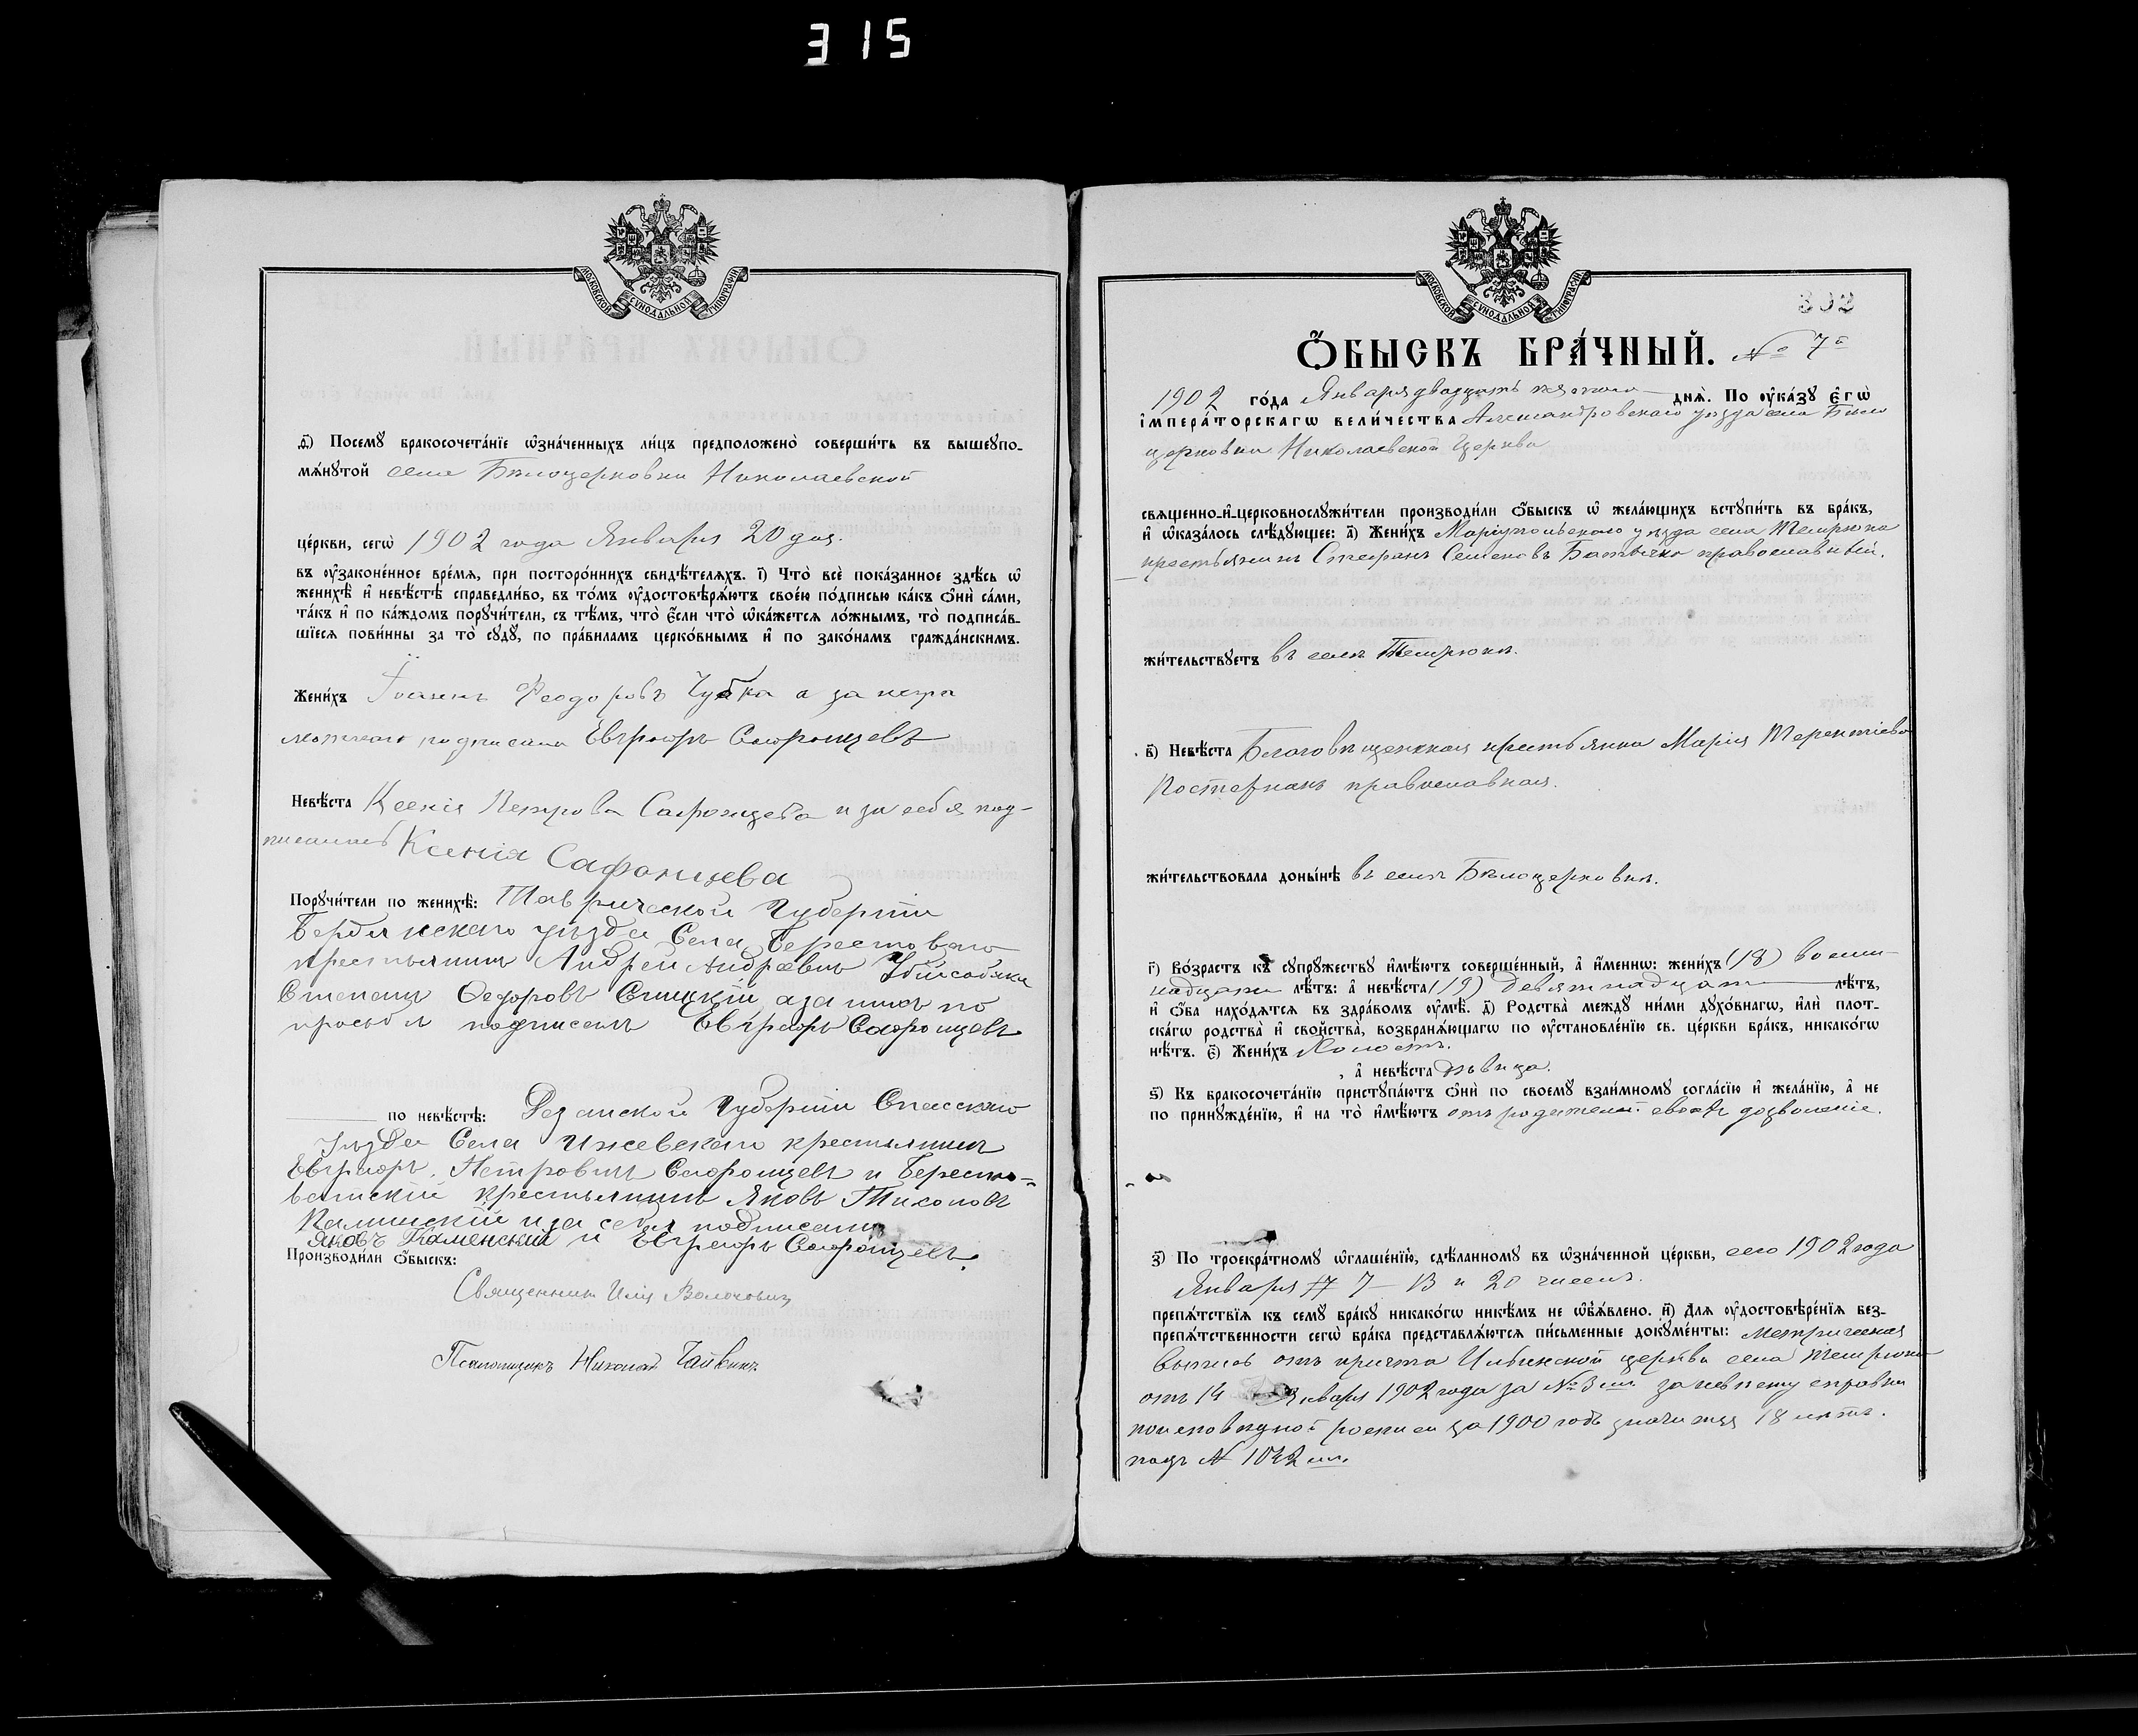 315
МОСКОВСКОЙ СѴНОДАЛЬНОЙ ТИПОГРАФІИ
Посемꙋ бракосочета́нїе ѡ҆зна́ченныхъ ли́цъ предположено̀ соверши́ть въ вышеꙋпо-
мѧ́нꙋтой села Бѣлоцерковки Николаевской
це́ркви, сегѡ̀ 1902 года Января 20 дня.
въ ᲂу҆зако́ненное вре́мѧ, при посторо́ннихъ свидѣ́телѧхъ. і҃) Что̀ всѐ пока́занное здѣ́сь ѡ҆
женихѣ̀ и҆ невѣ́стѣ справедли́во, въ то́мъ ᲂу҆достовѣрѧ́ютъ свое́ю по́дписью ка́къ ѻ҆нѝ са́ми,
та́къ и҆ по ка́ждомъ порꙋчи́тели, съ тѣ́мъ, что̀ є҆́сли что̀ ѡ҆ка́жетсѧ ло́жнымъ, то̀ подписа́в-
шїесѧ пови́нны за то̀ сꙋдꙋ̀, по пра́виламъ церко́внымъ и҆ по зако́намъ гражда́нскимъ.
Жени́хъ Іоаннъ Феодоровъ Чубка а за негра
мотнаго подписали Евграфъ Сафонцевъ
Невѣ́ста Ксенія Петрова Сафонцева и за себя под-
писалась Ксенія Сафонцева
Порꙋчи́тели по женихѣ̀: Таврической Губерніи
Бердянскаго уѣзда Села Берестоваго
крестьянинъ Андрей Андреевъ
Степанъ Федоровъ а за нихъ по
просьбѣ подписалъ Евграфъ Сафонцевъ
по невѣ́стѣ: Рязанской Губерніи Спасскаго
Уѣзда Села Ижевскаго крестьянинъ
Евграфъ Петровичъ Сафонцевъ и Бересто-
ватскій крестьянинъ Яковъ Тихоновъ
Каминскій и за себя подписали
Яковъ Каменскій и Евграфъ Сафонцевъ.
Производи́ли ѻ҆́быскъ:
Священникъ Илія Волочовичъ
Псаломщикъ Николай Чайвинъ
МОСКОВСКОЙ СѴНОДАЛЬНОЙ ТИПОГРАФІИ
302
Ѻ҆́быскъ бра́чный. № 7й
1902 го́да Января двадцать дня. По ᲂу҆ка́зꙋ є҆гѡ̀
і҆мпера́торскагѡ вели́чества Александровскаго уѣзда села Бѣло
церковки Николаевской Церкви
свѧщенно-и҆-церковнослꙋжи́тели производи́ли ѻ҆́быскъ ѡ҆ жела́ющихъ встꙋпи́ть въ бра́къ,
и҆ ѡ҆каза́лось слѣ́дꙋющее: а҃) Жени́хъ Маріупольскаго уѣзда села Темрюка
крестьянинъ Стефанъ Семеновъ Батычко православный.
жи́тельствꙋетъ въ селѣ Темрюкѣ.
в҃) Невѣ́ста Благовѣщенская крестьянка Марія Терентіева
Постернакъ православная.
жи́тельствовала доны́нѣ въ селѣ Бѣлоцерковкѣ.
г҃) Во́зрастъ къ сꙋпрꙋ́жествꙋ и҆мѣ́ютъ соверше́нный, а҆ и҆́менно: жени́хъ (18) восем-
надцати лѣ́тъ: а҆ невѣ́ста (19) девятнадцати лѣ́тъ,
и҆ ѻ҆́ба нахо́дѧтсѧ въ здра́вомъ ᲂу҆мѣ̀. д҃) Родства̀ междꙋ̀ ни́ми дꙋхо́внагѡ, и҆лѝ плот-
ска́гѡ родства̀ и҆ сво́йства̀, возбранѧ́ющагѡ по ᲂу҆становле́нїю св. це́ркви бра́къ, никако́гѡ
нѣ́тъ. є҃) Жени́хъ Холостъ.
а҆ невѣ́ста дѣвица.
ѕ҃) Къ бракосочета́нїю пристꙋпа́ютъ ѻ҆нѝ по своемꙋ̀ взаи́мномꙋ согла́сїю и҆ жела́нїю, а҆ не
по принꙋжде́нїю, и҆ на то̀ и҆мѣ́ютъ отъ родителей своихъ дозволеніе.
з҃) По троекра́тномꙋ ѡ҆глаше́нїю, сдѣ́ланномꙋ въ ѡ҆зна́ченной це́ркви, сего 1902 года
Января 7 13 и 20 чиселъ.
препѧ́тствїѧ къ семꙋ̀ бра́кꙋ никако́гѡ никѣ́мъ не ѡ҆б̾ѧ́влено. и҃) Длѧ ᲂу҆достовѣре́нїѧ без-
препѧ́тственности сегѡ̀ бра́ка представлѧ́ютсѧ пи́сьменные докꙋме́нты: метрическая
выпись отъ причта Ильинской церкви села Темрюка
отъ 14 Января 1902 года за № 3 справки
по исповѣдной росписи за 1900 годъ значится 18 лѣтъ.
подъ №